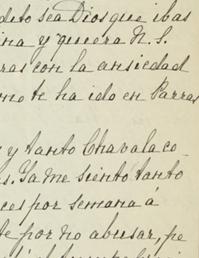 dito sea Dios que ibas
ina y quiera N. S.
ras con la ansiedad
omo te ha ido en Parras
y tanto Chavala co-
s. Ya me siento tanto
ces por semana á
te por no abusar, pe